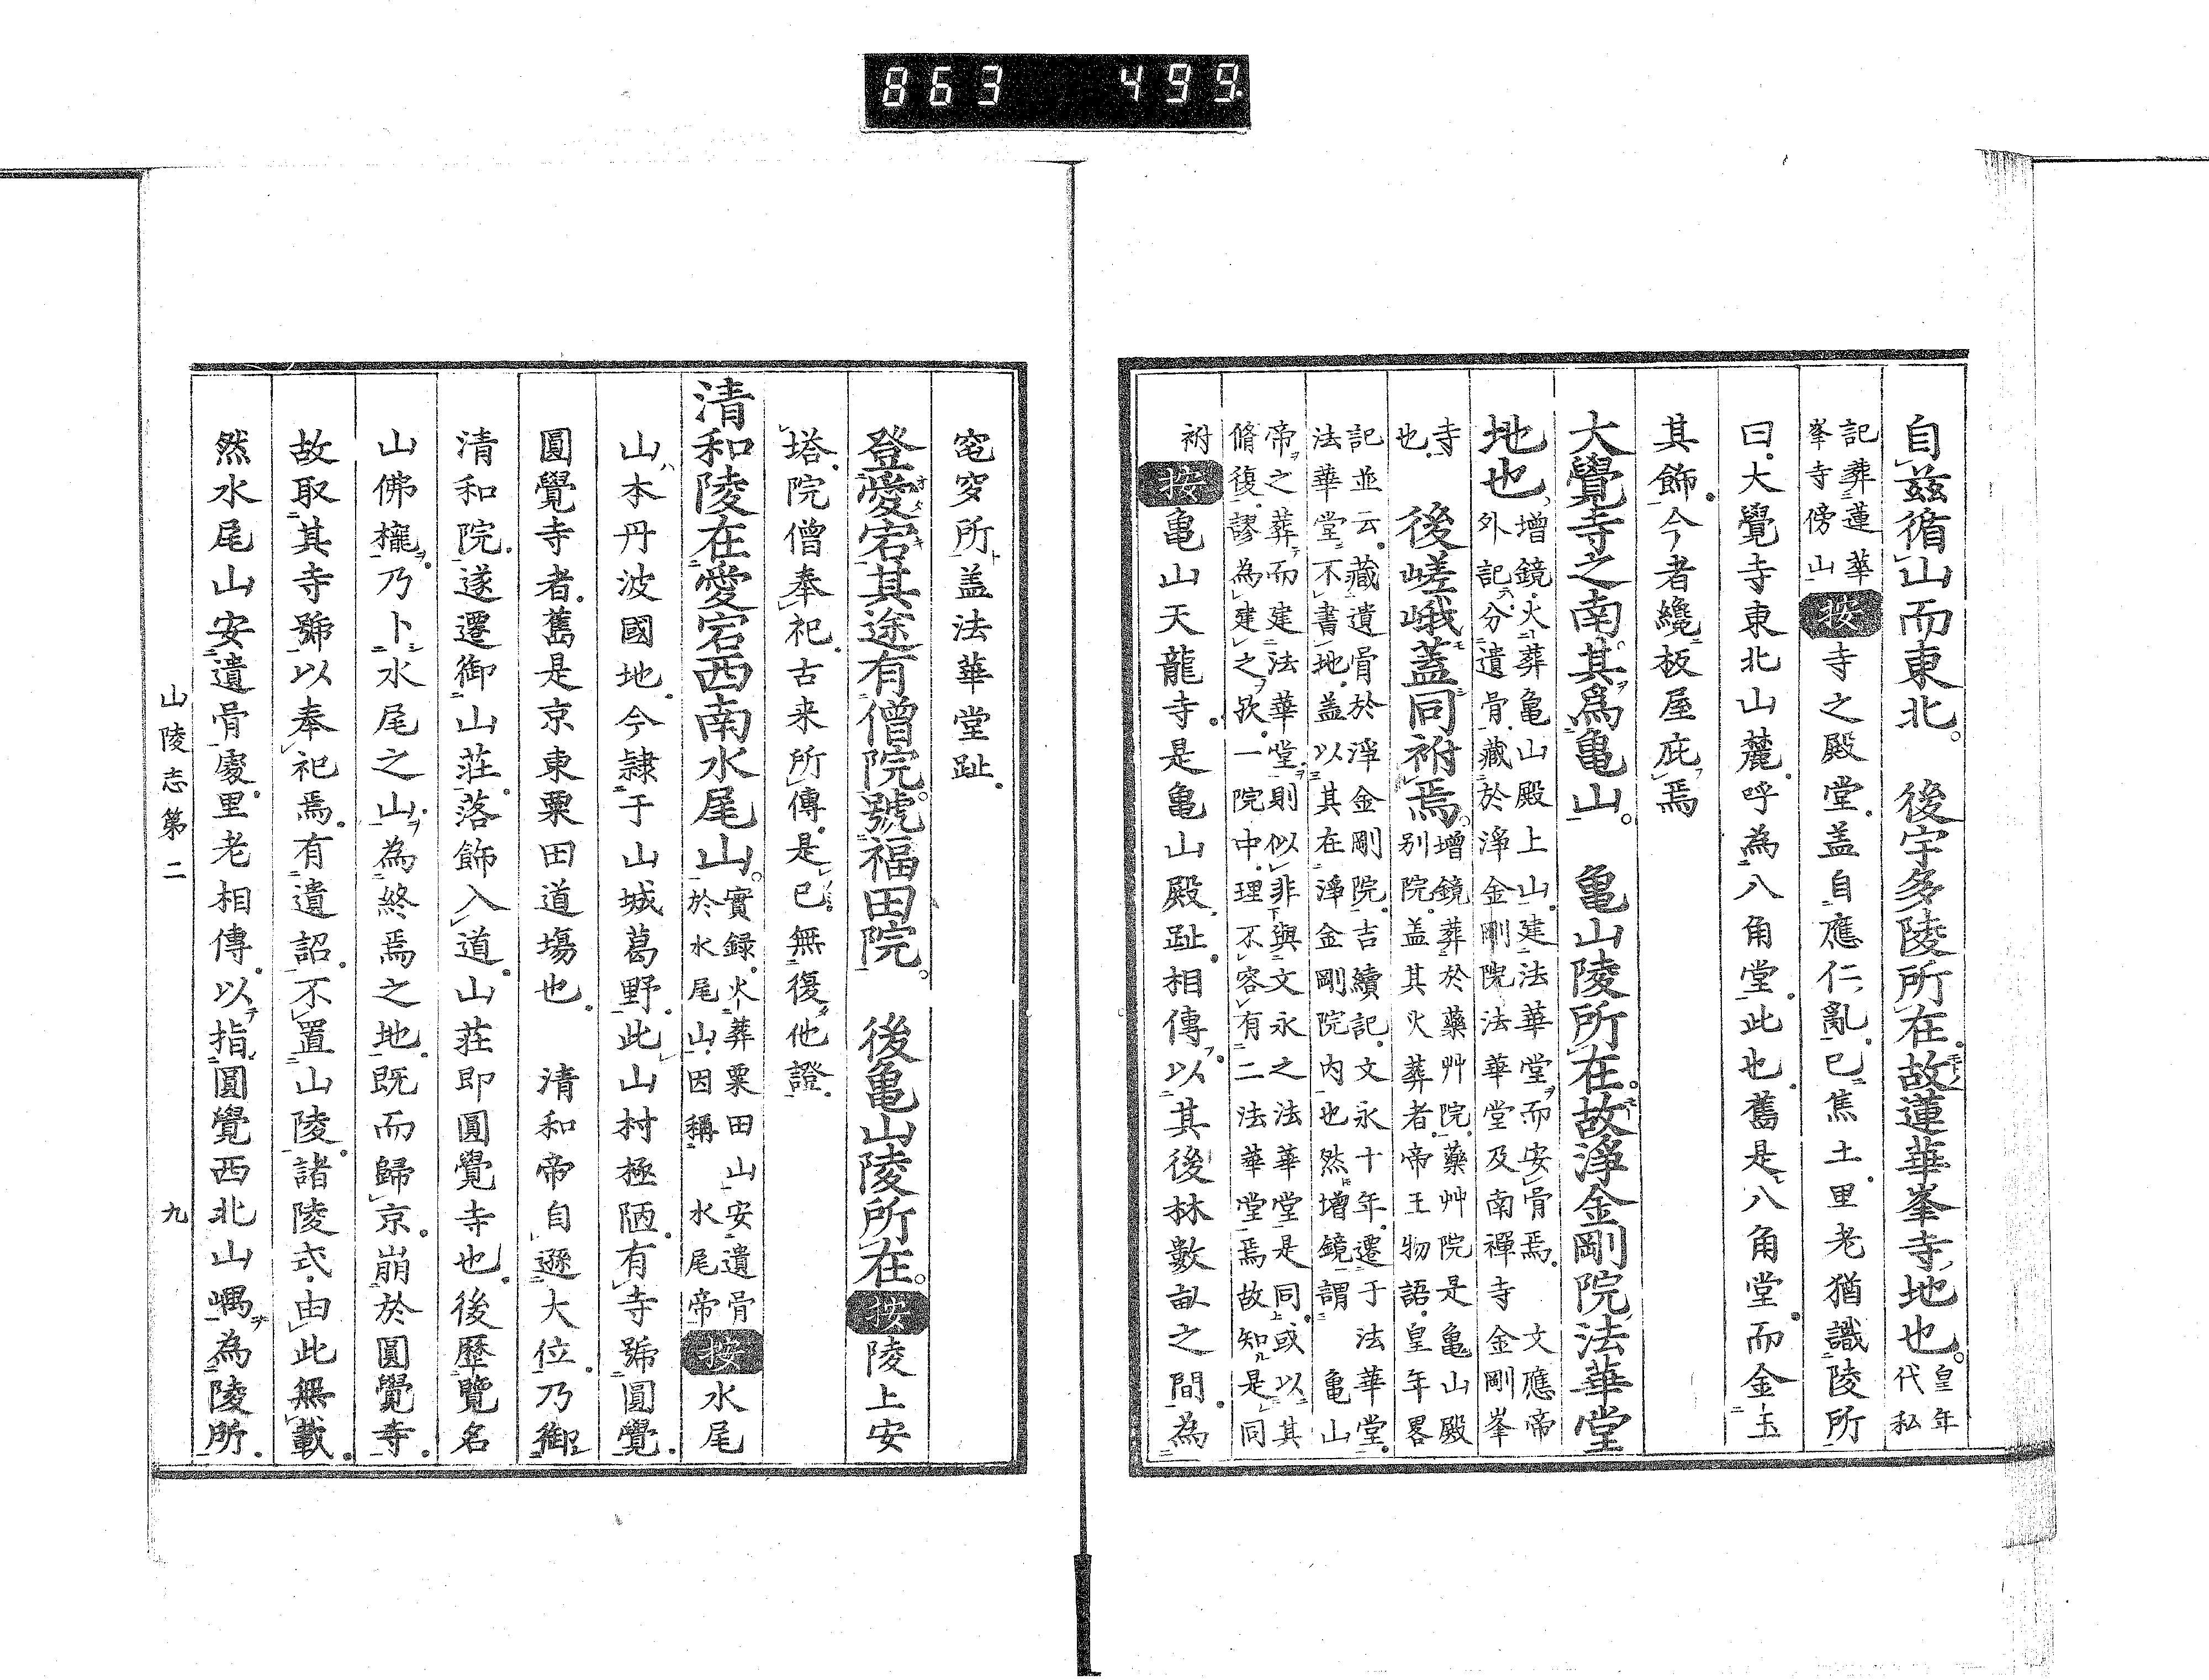 863 499
自茲循山而東北。後宇多陵所在。故蓮華峯寺地也。皇年代私
記葬蓮華峯寺傍山 按寺之殿堂。蓋自應仁亂。已焦土。里老猶識陵所
曰。大覺寺東北山麓。呼為八角堂。此也。舊是八角堂。而金玉
其飾。今者纔板屋庇焉
大覺寺之南。其爲亀山。亀山陵所在。故淨金剛院法華堂
地也。增鏡。火葬亀山殿上山。建法華堂。而安骨焉。文應帝外記。分遺骨。藏於淨金剛院法華堂及南禪寺金剛峯
寺也。後嵯峨蓋同祔焉。增鏡葬於藥艸院。藥艸院是亀山殿別院。蓋其火葬者。帝王物語。皇年畧
記並云。藏遺骨於淨金剛院。吉續記。文永十年。遷于法華堂。法華堂不書地。蓋以其在淨金剛院内也。然增鏡謂亀山
帝之葬而建法華堂。則似非與文永之法華堂是同。或以其脩復。謬為建之歟。一院中。理不容有二法華堂焉。故知是同
祔 按亀山天龍寺。是亀山殿趾。相傳。以其後林數畝之間。為
窀穸所。蓋法華堂趾。
登愛宕。其途有僧院。號福田院。後亀山陵所在。按陵上安
塔。院僧奉祀。古来所傳。是已。無復他證。
清和陵在愛宕西南水尾山。實録。火葬粟田山。安遺骨於水尾山。因稱水尾帝 按水尾
山。本丹波國地。今隷于山城葛野。此山村極陋。有寺號圓覺。
圓覺寺者。舊是京東粟田道塲也。清和帝自遜大位。乃御
清和院。遂遷御山莊。落飾入道。山莊即圓覺寺也。後歷覽名
山佛櫳。乃卜水尾之山。為終焉之地。既而歸京。崩於圓覺寺。
故取其寺號以奉祀焉。有遺詔。不置山陵。諸陵式。由此無載。
然水尾山安遺骨處。里老相傳。以指圓覺西北山嵎。為陵所。
山陵志第二 九